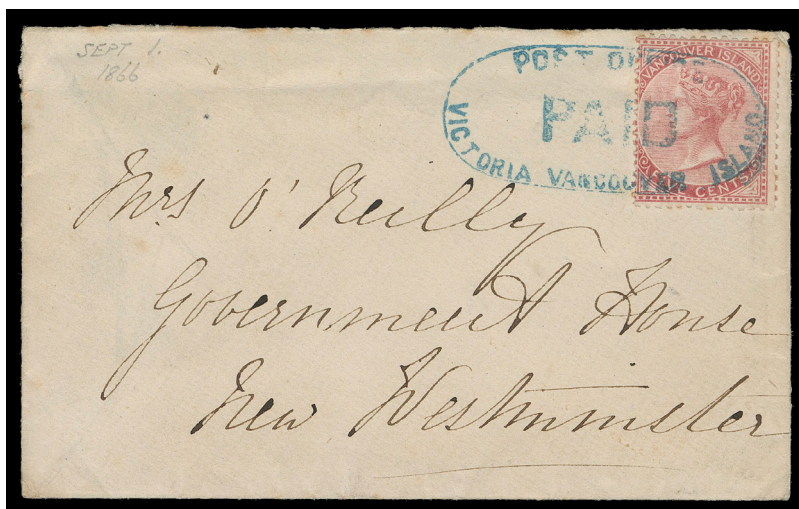 SEPT 1.
1866
POST OFFICE
PAID
VICTORIA VANCOUVER ISLAND
VANCOUVER ISLAND
FIVE CENTS
Mrs O'Reilly
Government House
New Westminster